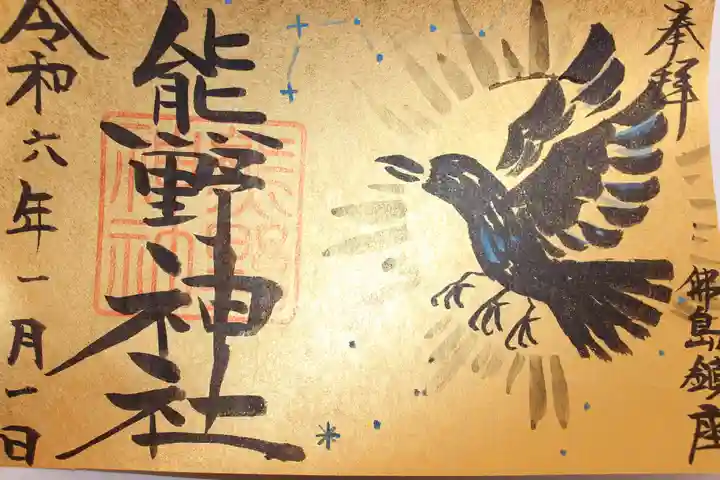 奉拝
佛島鎮座
熊野神社
令和六年一月一日